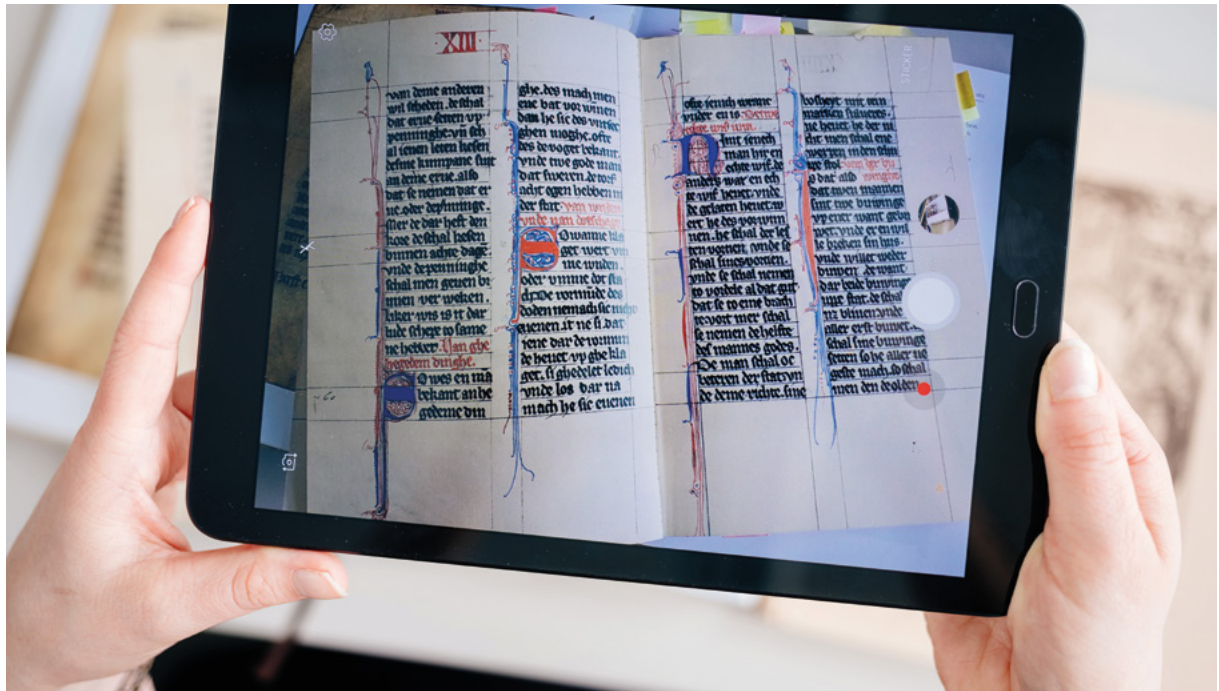 XIII
van deme anderen
wil scheden. de schal
dat erue setten vp
penninghe. vn sch
al ienen leten kesen
desine kumpane sint
an deme erue. also
dat se nemen dat er
ne. oder de penninge.
Mer de dar heft den
kore de schal kesen
binnen achte dage.
vnde de penninghe
schal men geuen bi
nnen ver weken.
liker wis is it dar
lude schepe to samne
ne hebbet. Van ghe
degedem dinghe.
Swes en ma
bekant an he
gedeme din
ghe. des mach men
ene bat vor winen
dan he sic des vntsec
ghen moghe. ofte
des de voget bekant.
vnde twe gode man
dat sweren. de torf
acht ogen hebben in
der stat.
Swanne kla
get wert vm
me wnden.
oder vmme dot sla
ch. De vormunde des
doden ne mach sic nicht
euenen. it ne si. dat
iene dar de vormun
de heuet vp ghe kla
get. si ghedelet ledich
vnde los. dar na
mach he sic euenen
ofte ienich wenne
vnder en is.
Nimt ienech
man hir en
echte wif. de
anders war en ech
te wif heuet. vnde
de gelaten heuet. w
ert he des vorwun
nen. he schal der les
ten vornen. vnde se
schal sines vornen.
vnde se schal nemen
to vordele al dat gut.
dat se to eme brach
te. vort mer schal
se nemen de helfte
des mannes godes.
De man schal oc
beteren der stat vn
de deme richte. sine
bosheyt mit ten
marken suluers.
ne heuet he der ni
cht. men schal ene
werpen in den schu
pe stol. van der bu
winghe.
dat twen mannen
sint twe buwinge
vp ener want gebu
wet. vnde er en wil
le breken sin hus.
vnde willet weder
buwen. de want
dar beide buwinge
vppe stat. de schal
aller erst buwet.
schal sine buwinge
setten so he aller no
geste mach. so schal
men den de olden
STICKER